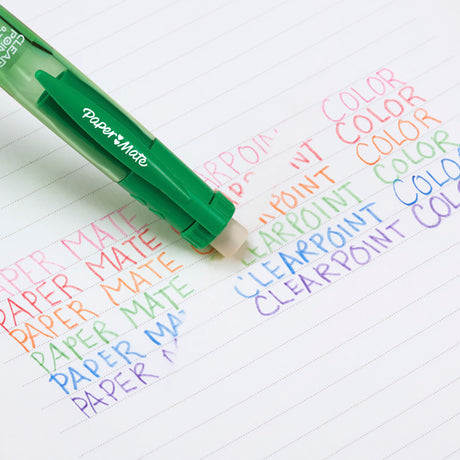 CLEAR
POIN
Paper Mate
APER MATE ARPOINT COLOR
PAPER MATE T COLOR
PAPER MATE RPOINT COLOR
PAPER MATE EARPOINT COLOR
PAPER MAT CLEARPOINT COLO
PAPER CLEARPOINT COLO